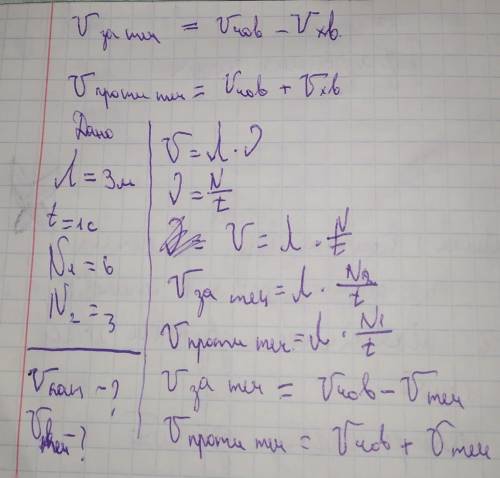 V за теч = Vчов − Vхв.
V проти теч = Vчов + Vхв
Дано
λ = 3м
t = 1с
N₁ = 6
N₂ = 3
Vчов − ?
Vтеч − ?
V = λ · ν
ν = N/t
V = λ · N/t
V за теч = λ · N₂/t
V проти теч = λ · N₁/t
V за теч = Vчов − Vтеч
V проти теч = Vчов + Vтеч